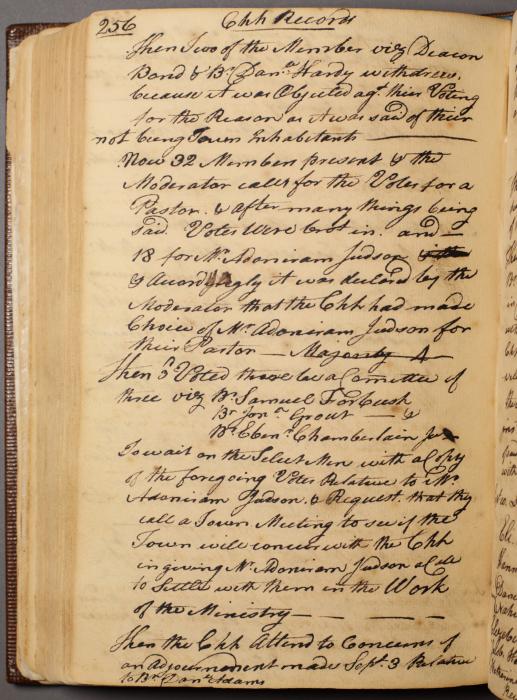 256 Chh Records
Then Two of the Member viz Deacon
Bond & Br Danll Hardy withdrew.
because it was Objected agt their Voting
for the Reason as it was said of their
not being Town Inhabitants
Now 32 Members present & the
Moderator calls for the Votes for a
Pastor. & After many things being
said Votes Were brot in. and
18 for Mr Adoniram Judson
& Accordingly it was declard by the
Moderator that the Chh had made
Choice of Mr Adoniram Judson for
their Pastor — Majority 4
Then 3 Voted there be a Comittee of
three viz Br Samuel Forbush
Br Jonn Grout &
Br Ebenr Chamberlain
To wait on the Select Men with a Copy
of the foregoing Votes Relative to Mr
Adoniram Judson. & Request that they
call a Town Meeting to see if the
Town will concur with the Chh
in giving Mr Adoniram Judson a Call
to Settle with them in the Work
of the Ministry
Then the Chh Attend to Concerns of
an adjournment made Sept. 3 Relative
to Br Danll Adams